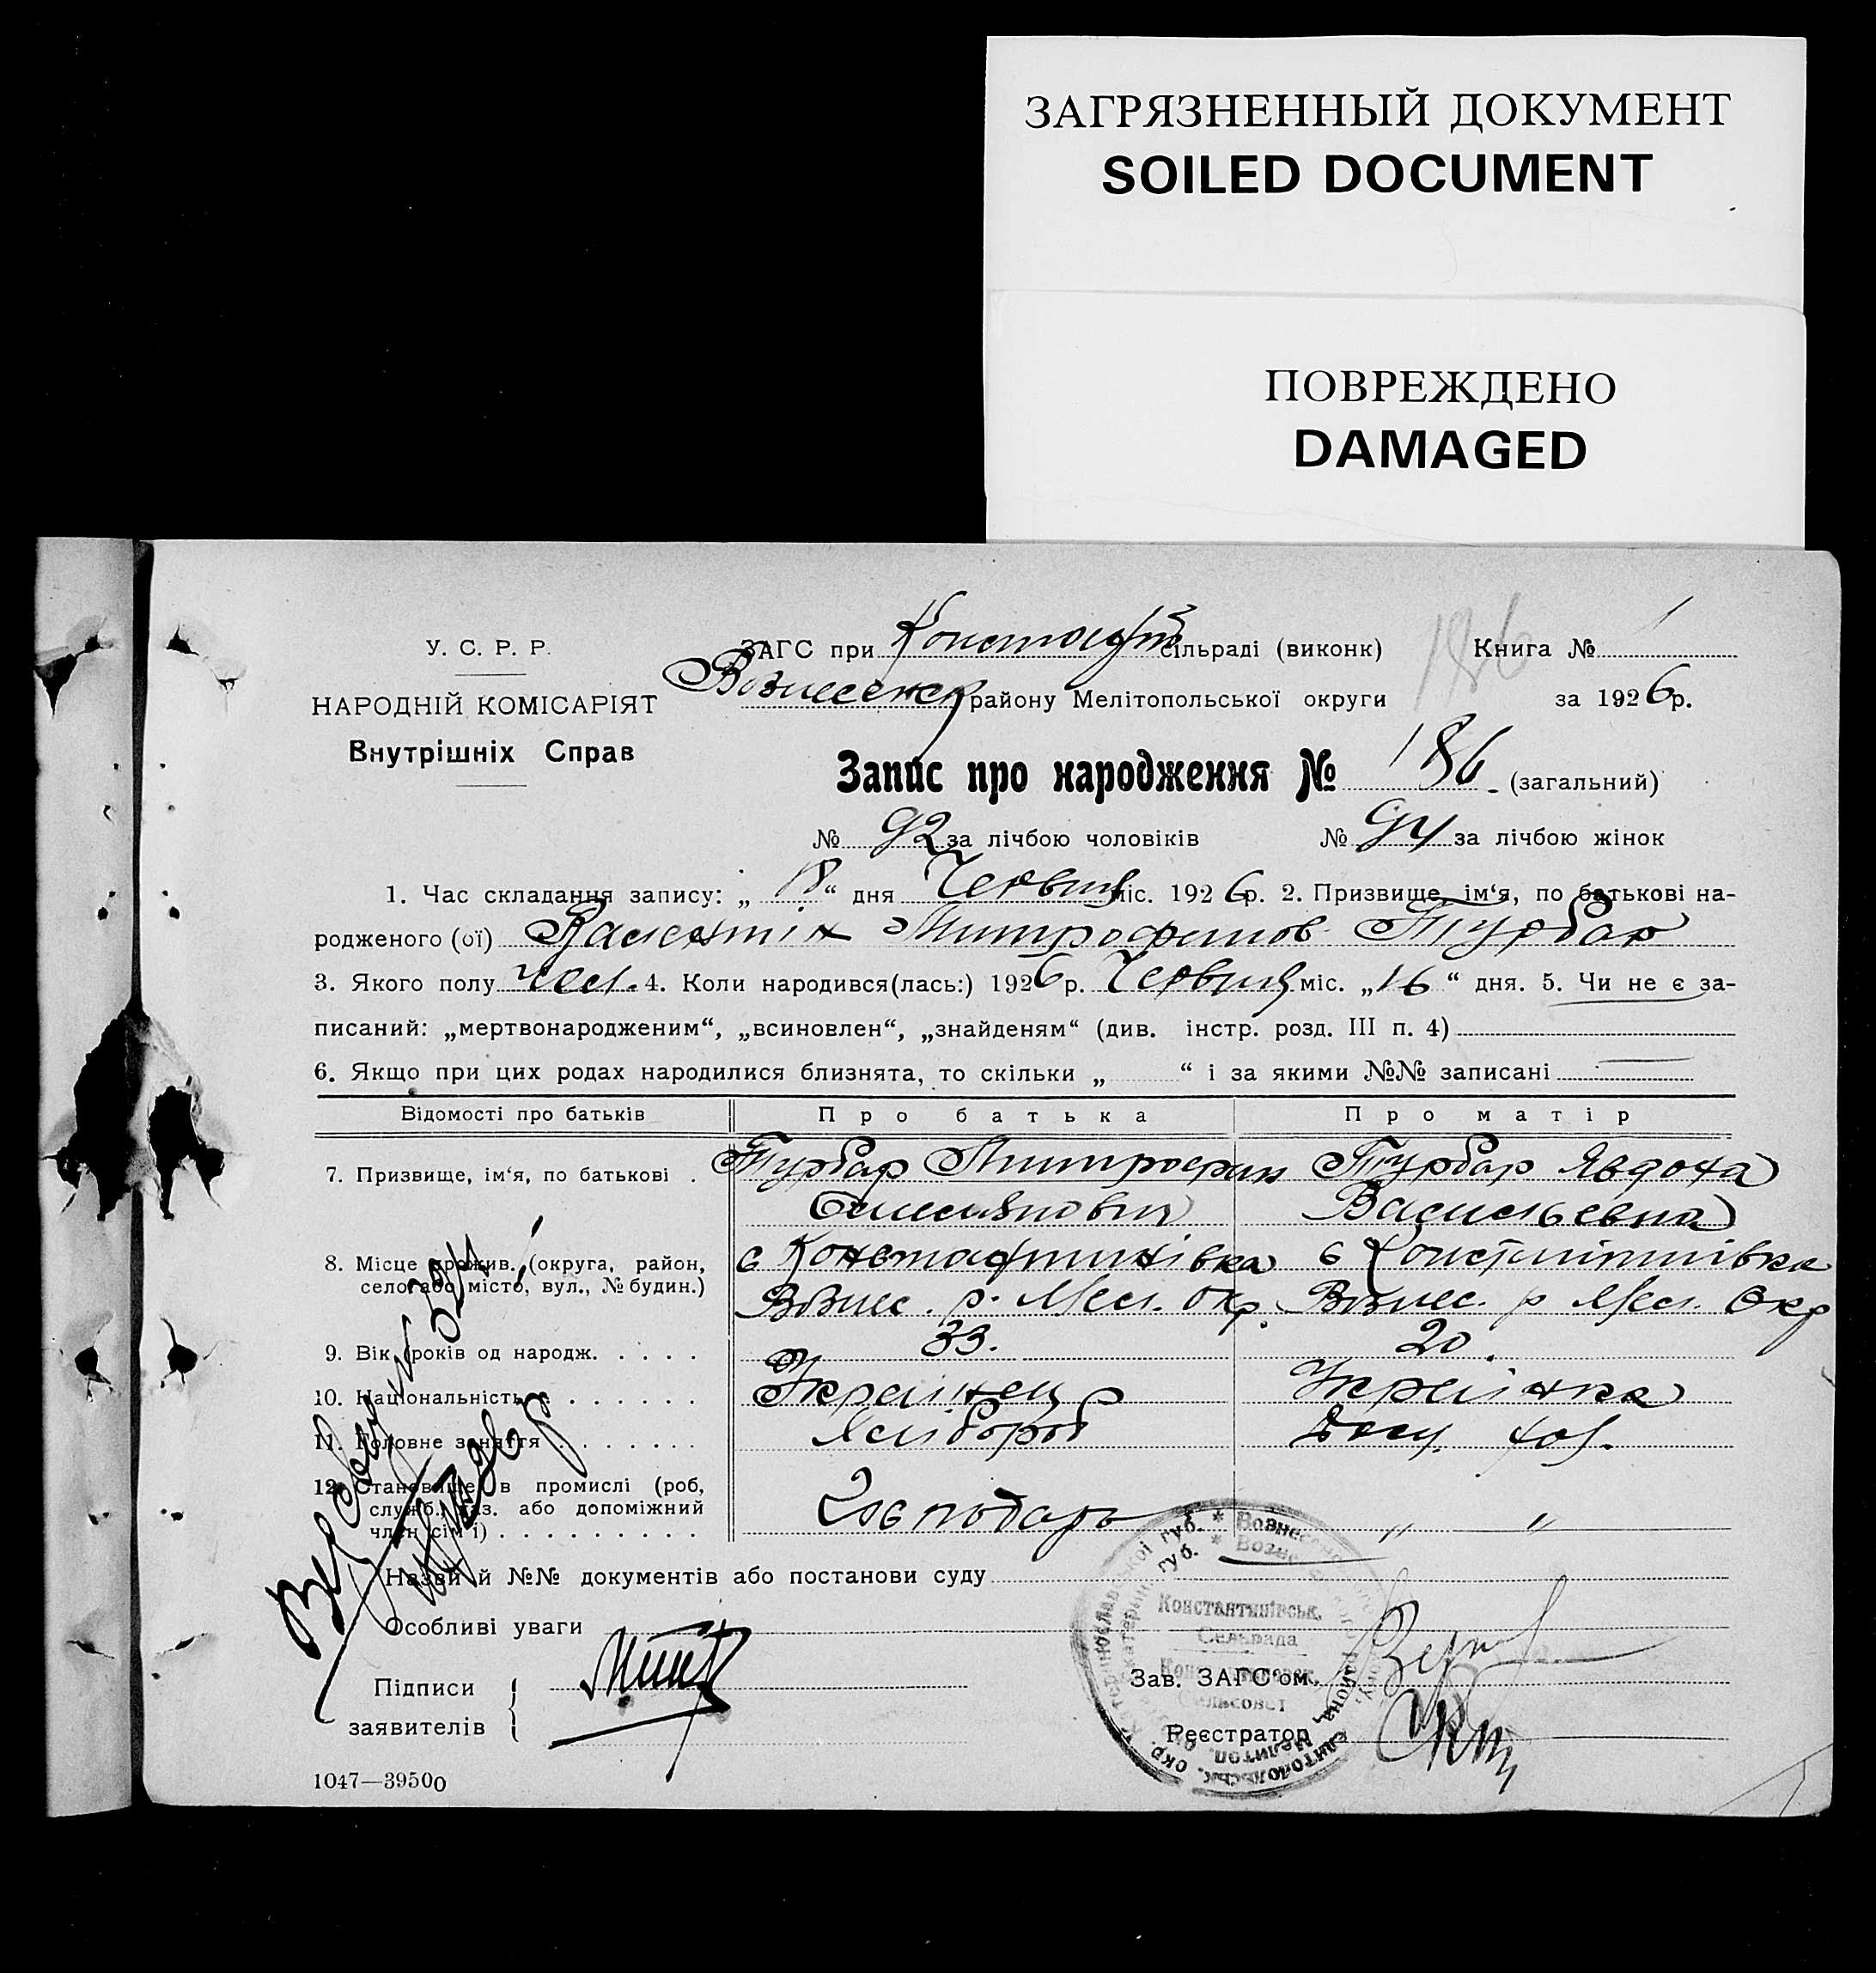 ЗАГРЯЗНЕННЫЙ ДОКУМЕНТ
SOILED DOCUMENT
ПОВРЕЖДЕНО
DAMAGED
У. С. Р. Р.
НАРОДНІЙ КОМІСАРІЯТ
Внутрішніх Справ
ЗАГС при сільраді (виконк) 186 Книга № 1
Вознесенск району Мелітопольської округи за 1926 р.
Запис про народження № 186 (загальний)
№ 92 за лічбою чоловіків № 94 за лічбою жінок
1. Час складання запису: „18“ дня Червня міс. 1926 р. 2. Призвище, ім‘я, по батькові на-
родженого (ої) Валентін Митрофанов Турбар
3. Якого полу чол. 4. Коли народився(лась:) 1926 р. Червня міс. „16“ дня. 5. Чи не є за-
писаний: „мертвонародженим“, „всиновлен“, „знайденям“ (див. інстр. розд. III п. 4)
6. Якщо при цих родах народилися близнята, то скільки „ “ і за якими №№ записані
Відомості про батьків Про батька Про матір
7. Призвище, ім‘я, по батькові . Турбар Митрофан Турбар Явдоха
Васильевна
8. Місце прожив. (округа, район, с Константинівка с Константинівка
село або місто, вул., № будин.) Вознес. р. Мел. Окр. Вознес. р Мел. Окр
9. Вік (років од народж. . . . . 33. 20.
10. Національність . . . . . . . Українец Українка
11. Головне заняття . . . . . . . Хлібороб
12. Становище в промислі (роб,
служб., хаз. або допоміжний
член сім‘ї) . . . . . . . . . Господарь „ „
Назви й №№ документів або постанови суду
Особливі уваги
Підписи
заявителів
Константинівськ.
Сельрада
Зав. ЗАГС‘ом.
Реєстратор
1047—39500